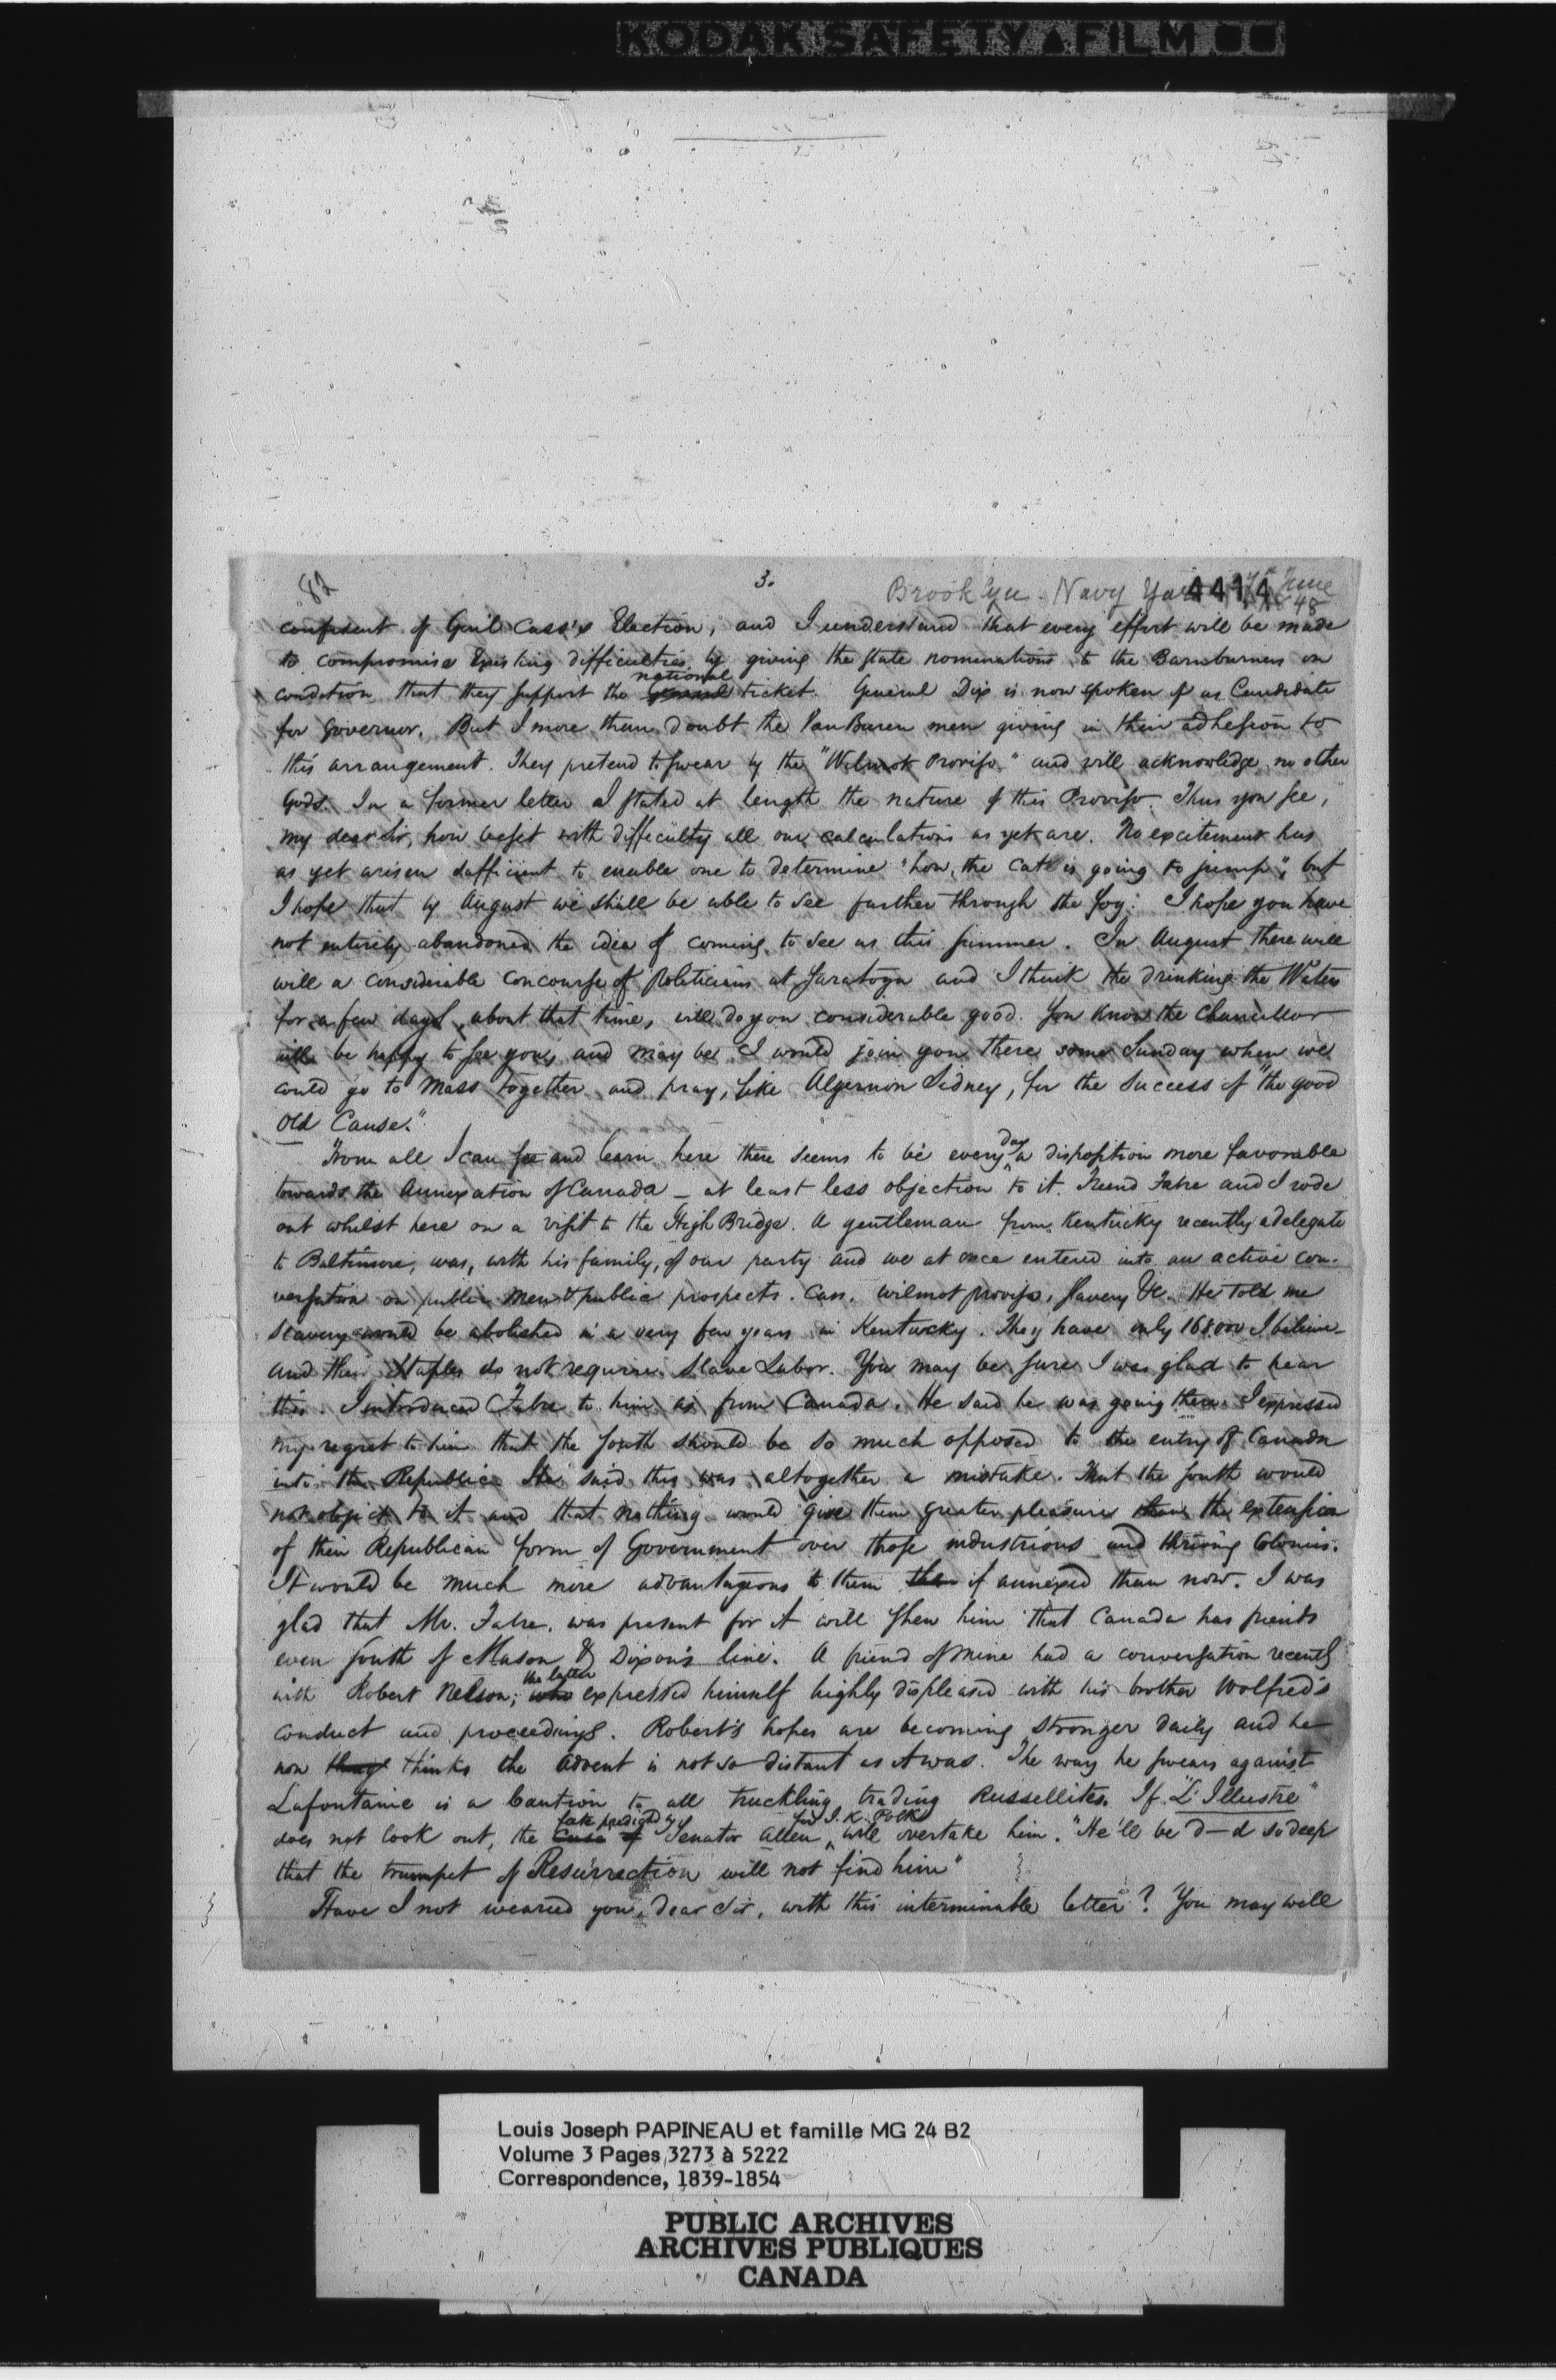 KODAK SAFETY FILM
82
3.
Brooklyn Navy Yard 4414 June
48
confident of Genl Cass's Election, and I understand that every effort will be made
to compromise Existing difficulties by giving the State nominations to the Barnburners on
condition that they support the national ticket. General Dix is now spoken of as Candidate
for Governor. But I more than doubt the Van Buren men giving in their adhesion to
this arrangement. They pretend to swear by the "Wilmot Proviso" and will acknowledge no other
Gods. In a former letter I stated at length the nature of this Proviso. Thus you see,
my dear Sir, how beset with difficulty all our calculations as yet are. No excitement has
as yet arisen sufficient to enable one to determine "how the cat is going to jump", but
I hope that by August we shall be able to see further through the fog. I hope you have
not entirely abandoned the idea of coming to see us this summer. In August there will
will a considerable concourse of Politicians at Saratoga and I think the drinking the Waters
for a few days, about that time, will do you considerable good. You know the Chancellor
will be happy to see you, and may be I would join you there some Sunday when we
could go to Mass together and pray, like Algernon Sidney, for the success of "the good
Old Cause."
From all I can see and learn here there seems to be every day a disposition more favorable
towards the Annexation of Canada — at least less objection to it. Friend Fabre and I rode
out whilst here on a visit to the High Bridge. A gentleman from Kentucky recently a delegate
to Baltimore, was, with his family, of our party and we at once entered into an active con-
versation on public men & public prospects. Cass, Wilmot proviso, Slavery &c. He told me
Slavery would be abolished in a very few years in Kentucky. They have only 168000 I believe
and their Staples do not require Slave Labor. You may be sure I was glad to hear
this. I introduced Fabre to him as from Canada. He said he was going there. I expressed
my regret to him that the South should be so much opposed to the entry of Canada
into the Republic. He said this was altogether a mistake. That the South would
not object to it and that nothing would give them greater pleasure than the extension
of their Republican form of Government over those industrious and thriving Colonies.
It would be much more advantageous to them the if annexed than now. I was
glad that Mr. Fabre, was present for it will shew him that Canada has friends
even South of Mason & Dixon's line. A friend of mine had a conversation recently
with Robert Nelson; who the latter expressed himself highly displeased with his brother Wolfred's
conduct and proceedings. Robert's hopes are becoming stronger daily and he
now thinks the advent is not so distant as it was. The way he swears against
Lafontaine is a Caution to all truckling, trading Russellites. If "L'Illustre"
does not look out, the fate predicted by Senator Allen for J. K. Polk will overtake him. "He'll be d—d so deep
that the trumpet of Resurrection will not find him"
Have I not wearied you, dear Sir, with this interminable letter? You may well
Louis Joseph PAPINEAU et famille MG 24 B2
Volume 3 Pages 3273 à 5222
Correspondence, 1839-1854
PUBLIC ARCHIVES
ARCHIVES PUBLIQUES
CANADA